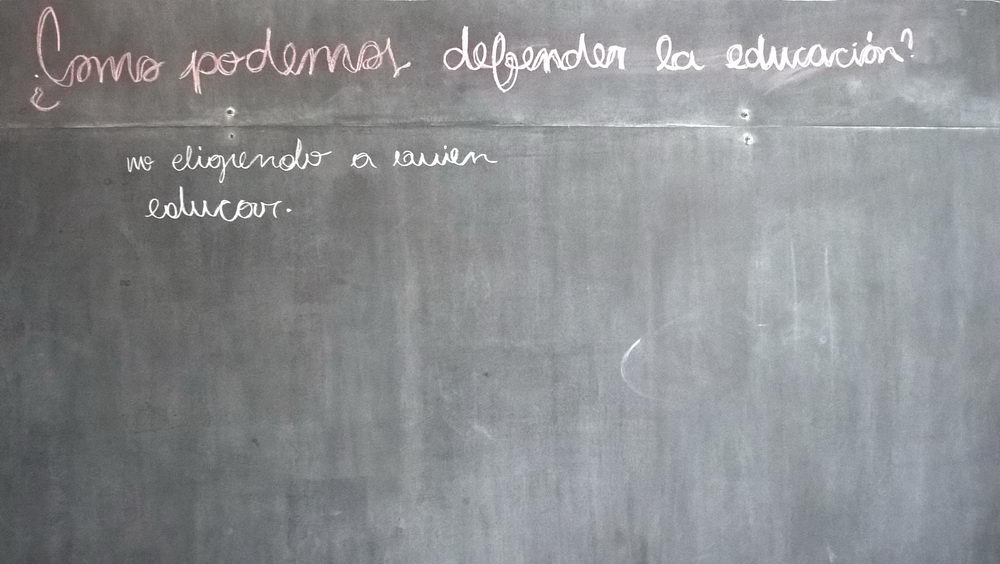 ¿Como podemos defender la educación?
no eligiendo a quien
educar.